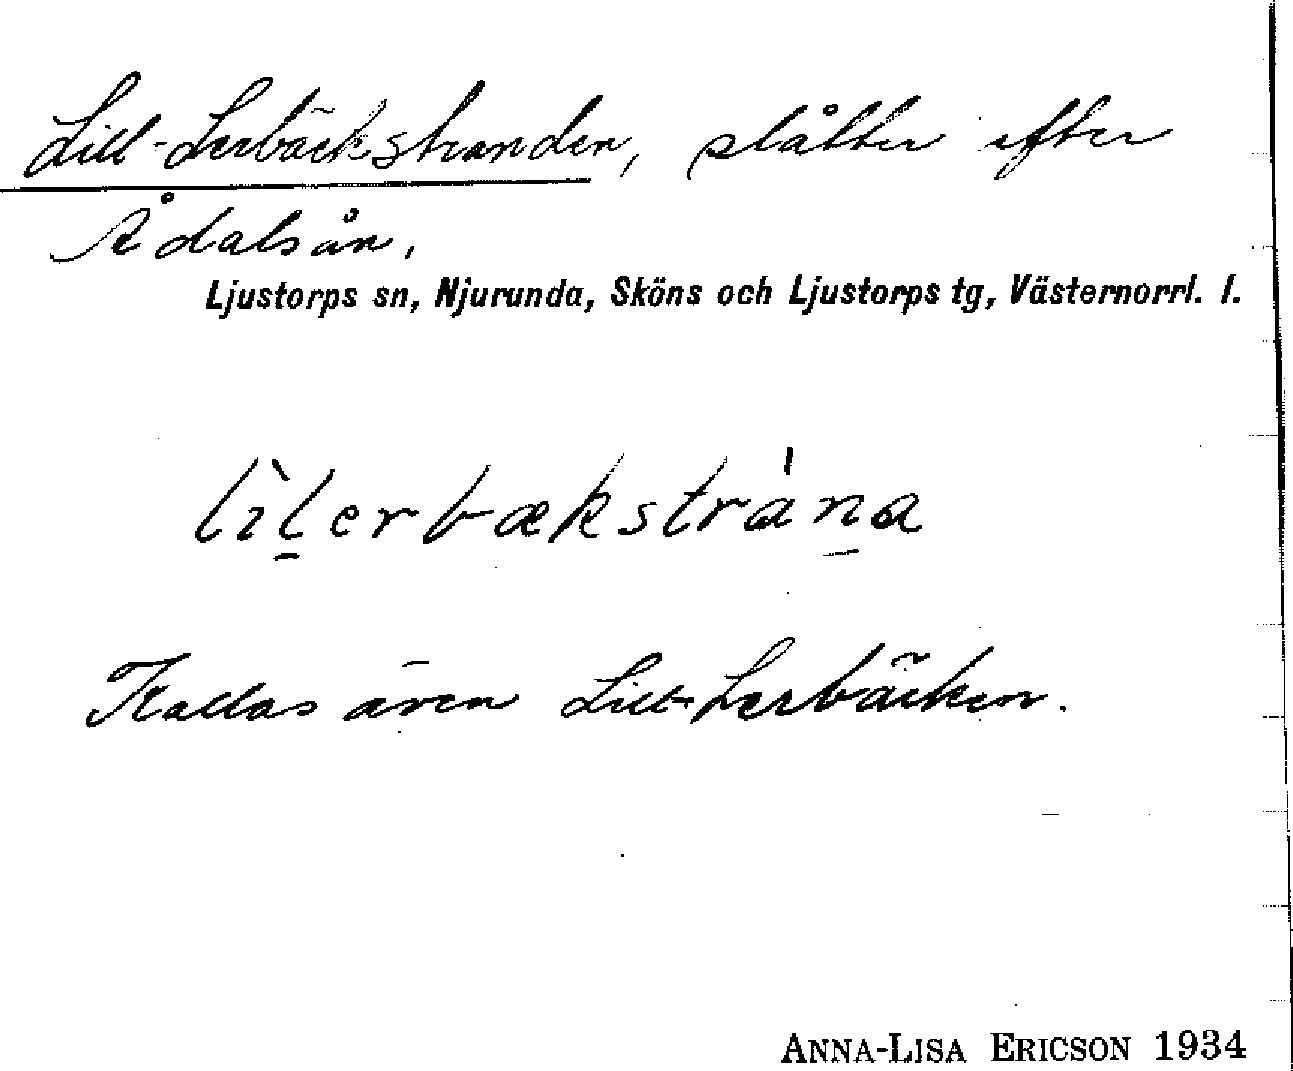 Lill-Lerbäckstranden, slåtter efter
Ådalsån.
Ljustorps sn, Njurunda, Sköns och Ljustorps tg, Västernorrl. l.
lìl̠erbækstrána̠na
Kallas även Lill-Lerbäcken.
ANNA-LISA ERICSON 1934